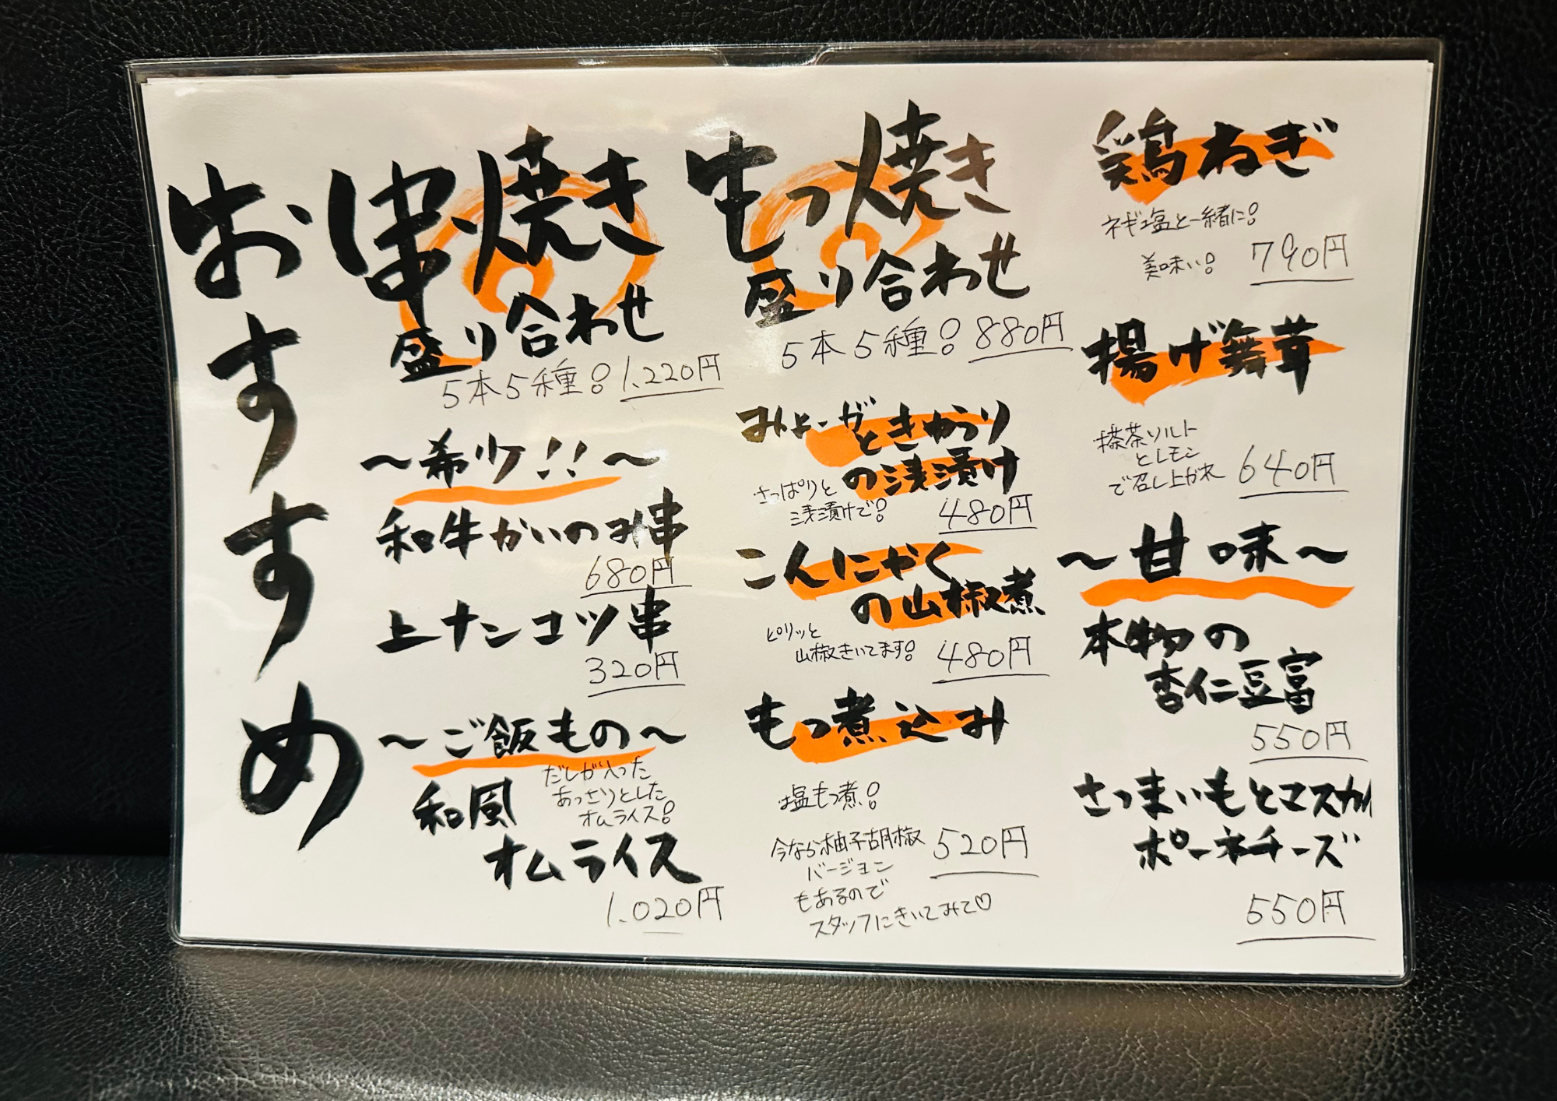 おすすめ
串焼き
盛り合わせ
5本5種! 1,220円
〜希少!!〜
和牛かいのみ串
680円
上ナンコツ串
320円
〜ご飯もの〜
和風
オムライス
だしが入った
あっさりとした
オムライス!
1,020円
もつ焼き
盛り合わせ
5本5種! 880円
みょーがときゅうり
の浅漬け
さっぱりと
浅漬けで!
480円
こんにゃく
の山椒煮
ピリッと
山椒きいてます!
480円
もつ煮込み
塩もつ煮!
今なら柚子胡椒
バージョン
もあるので
スタッフにきいてみて♡
520円
鶏ねぎ
ネギ塩と一緒に!
美味い!
790円
揚げ舞茸
抹茶ソルト
とレモン
で召し上がれ
640円
〜甘味〜
本物の
杏仁豆富
550円
さつまいもとマスカル
ポーネチーズ
550円